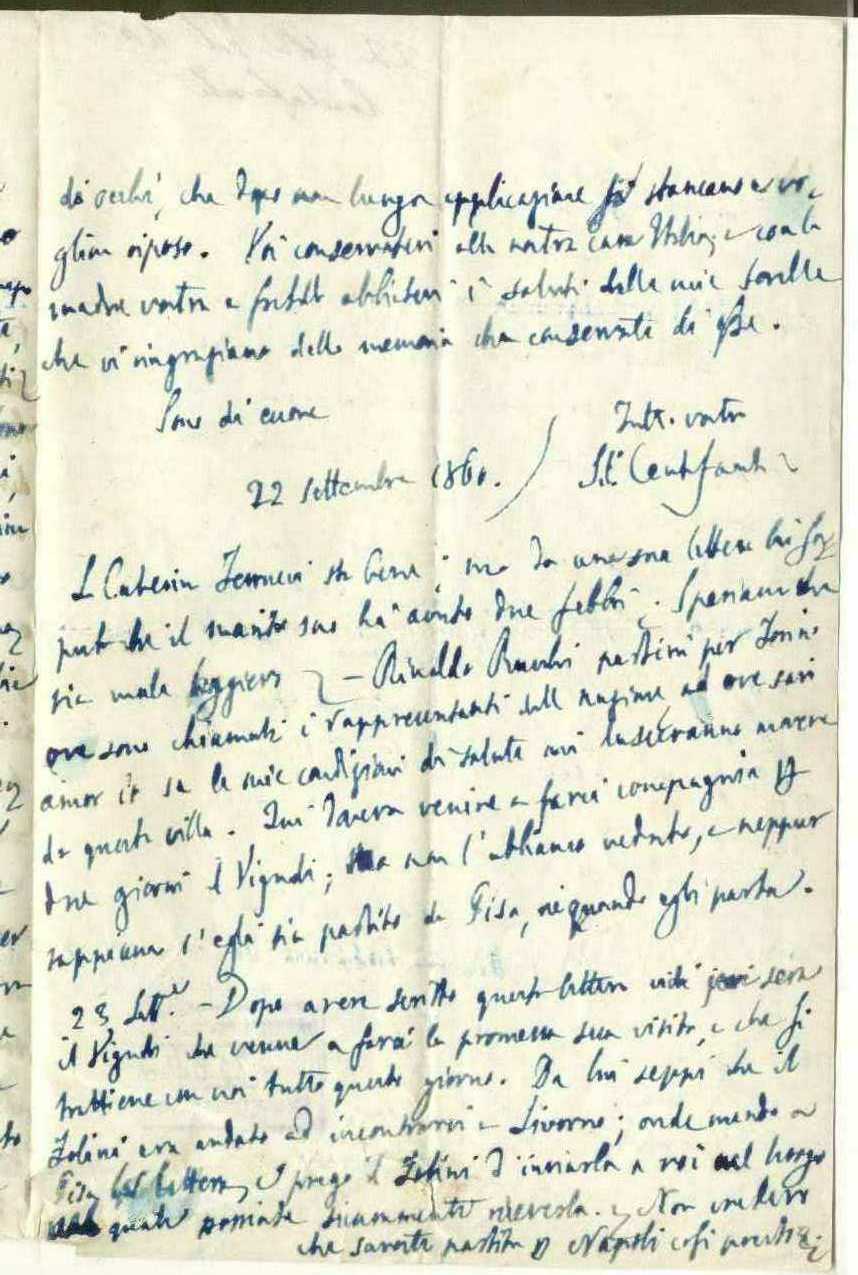 di occhi, che dopo non lunga applicazione si stancano e vo-
gliono riposo. Voi conservatevi alla nostra cara Italia, e con la
madre vostra e fratello abbiatevi i saluti delle mie sorelle
che vi ringraziano della memoria che conservate di esse.
Sono di cuore
Tutt. vostro
S. Centofanti
22 settembre 1860.
La Caterina sta bene; ma da una sua lettera ho sa-
puto che il marito suo ha avuto due febbri. Speriamo che
sia male leggiero — Rinaldo partirà per Torino
ove sono chiamati i rappresentanti della nazione, ad ove sarei
ancor io se le mie condizioni di salute mi lasceranno movere
da questa villa. Qui doveva venire a farci compagnia p
due giorni il; ma non l'abbiamo veduto, e neppur
sappiamo s'egli sia partito da Pisa, nè quando egli parta.
23 Sett.e — Dopo avere scritto questa lettera vidi jeri sera
il che venne a farci la promessa sua visita, e che si
trattiene con noi tutto questo giorno. Da lui seppi che il
era andato ad incontrarvi a Livorno; onde mando a
Pisa la lettera, e prego il d'inviarla a voi nel luogo
quale possiate sicuramente riceverla. Non credevo
che sareste partita p Napoli così presto.